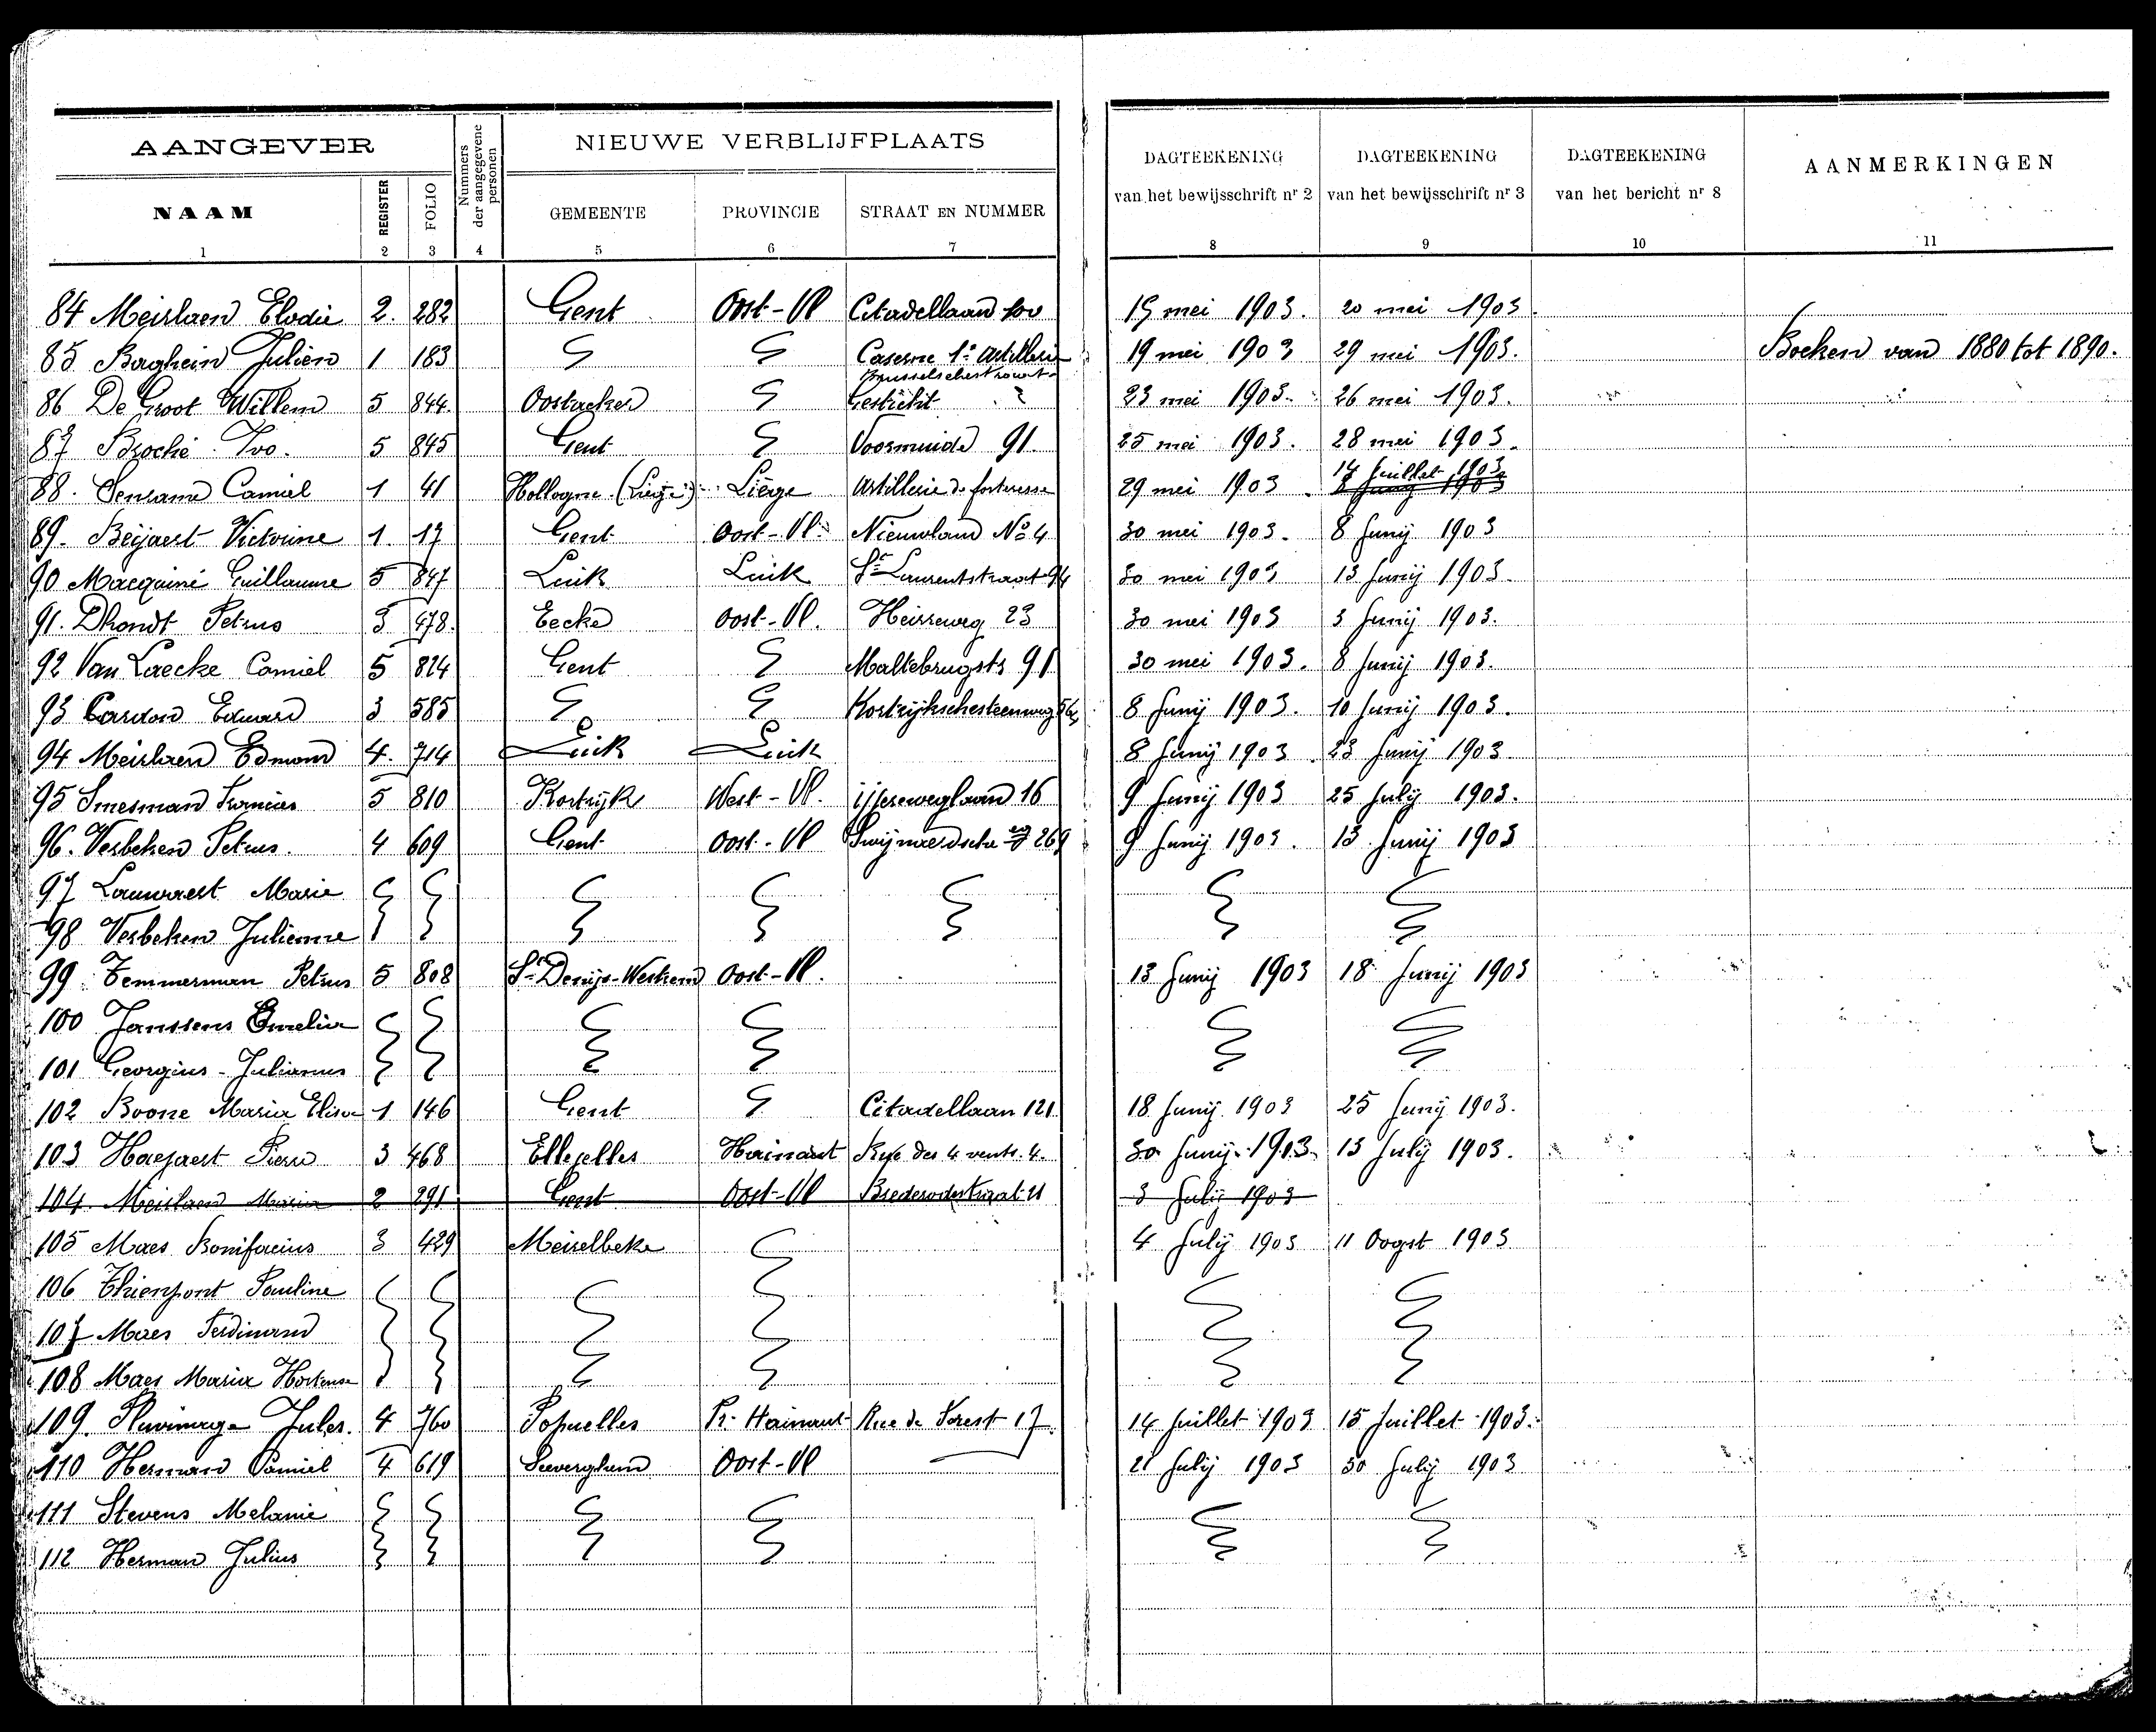 AANGEVER
Nummers der aangegevene personen
NIEUWE VERBLIJFPLAATS
DAGTEEKENING van het bewijsschrift nr 2
DAGTEEKENING van het bewijsschrift nr 3
DAGTEEKENING van het bericht nr 8
AANMERKINGEN
NAAM REGISTER FOLIO GEMEENTE PROVINCIE STRAAT EN NUMMER
1 2 3 4 5 6 7 8 9 10 11
84 Meirlaen Elodie 2. 282 Gent Oost-Vl Citadellaan 19 mei 1903. 20 mei 1903.
85 Baghein Julien 1 183 Caserne 1e Artillerie 19 mei 1903 29 mei 1903. Boeken van 1880 tot 1890.
86 De Groot Willem 5 844 Oostacker Gesticht 23 mei 1903. 26 mei 1903.
87 Broché Ivo. 5 845 Gent Voormuide 91. 25 mei 1903. 28 mei 1903.
88. Camiel 1 41 Hollogne (Liège) Liège Artillerie de forteresse 29 mei 1903 14 Juillet 1903
89. Beyaert Victorine 1. 17 Gent Oost-Vl. Nieuwland No 4 30 mei 1903. 8 Junij 1903
90 Macquiné Guillaume 5 847 Luik Luik St Laurentstraat 94 30 mei 1903 13 Junij 1903.
91. Dhondt Petrus 3 478. Eecke Oost-Vl. Heirweg 23 30 mei 1903 3 Junij 1903.
92 Van Laecke Camiel 5 824 Gent Maltebrugstr 91 30 mei 1903. 8 Junij 1903.
93 Cardon Eduard 3 585 Kortrijkschesteenweg 8 Junij 1903. 10 Junij 1903.
94 Meirlaen Edmond 4. 714 Luik Luik 8 Junij 1903 23 Junij 1903.
95 Smesman 5 810 Kortrijk West-Vl. 16 9 Junij 1903 25 Julij 1903.
96. Verbeken Petrus. 4 609 Gent Oost-Vl 269 9 Junij 1903. 13 Junij 1903
97 Lauwaert Marie
98 Verbeken Julienne
99. Temmerman Petrus 5 808 St Denijs-Westrem Oost-Vl. 13 Junij 1903 18 Junij 1903
100 Janssens
101 Georgius-Julianus
102 Boone Maria Elisa 1 146 Gent Citadellaan 121 18 Junij 1903 25 Junij 1903.
103 Haegaert Pierre 3 468 Ellezelles Hainaut Rue des 4 vents. 4. 30 Junij 1903. 13 Julij 1903.
104 Meirlaen Maria 2 291 Gent Oost-Vl Brederodestraat 21 3 Julij 1903
105 Maes Bonifacius 3 429 Meirelbeke 4 Julij 1903 11 Oogst 1903
106 Thienpont Pauline
107 Maes Ferdinand
108 Maes Maria Hortense
109. Jules. 4 760 Popuelles Pr. Hainaut Rue de Forest 17. 14 Juillet 1903 15 Juillet 1903.
110 Herman Camiel 4 619 Seeverghem Oost-Vl 21 Julij 1903 30 Julij 1903
111 Stevens Melanie
112 Herman Julius